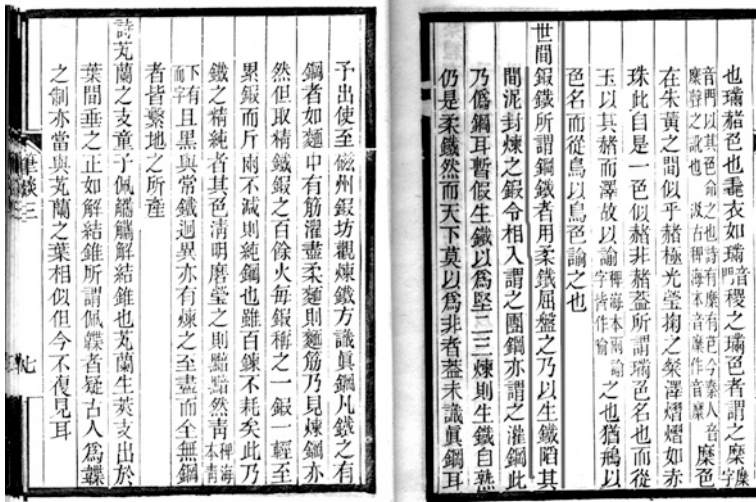 也璊赭色也毳衣如璊音門稷之璊色者謂之穈穈字
音門以其色命之也詩有穈有芑今秦人音
穈聲之訛也
汲古稗海本音穈作音糜
穈色
在朱黃之間似乎赭極光瑩掬之粲澤熠熠如赤
珠此自是一色似赭非赭蓋所謂璊色名也而從
玉以其赭而澤故以諭稗海本兩諭字皆作喻之也猶鳱以
色名而從鳥以鳥色諭之也
世間鍜鐵所謂鋼鐵者用柔鐵屈盤之乃以生鐵陷其
間泥封煉之鍜令相入謂之團鋼亦謂之灌鋼此
乃僞鋼耳暫假生鐵以爲堅二三煉則生鐵自熟
仍是柔鐵然而天下莫以爲非者蓋未識眞鋼耳
予出使至磁州鍜坊觀煉鐵方識眞鋼凡鐵之有
鋼者如麵中有筋濯盡柔麵則麵筋乃見煉鋼亦
然但取精鐵鍜之百餘火每鍜稱之一鍜一輕至
累鍜而斤兩不減則純鋼也雖百鍊不耗矣此乃
鐵之精純者其色淸明磨瑩之則黯黯然靑稗海本靑
下有而字且黑與常鐵迥異亦有煉之至盡而全無鋼
者皆繫地之所產
詩芄蘭之支童子佩觿觿解結錐也芄蘭生莢支出於
葉間垂之正如解結錐所謂佩韘者疑古人爲韘
之制亦當與芄蘭之葉相似但今不復見耳
筆談三
七